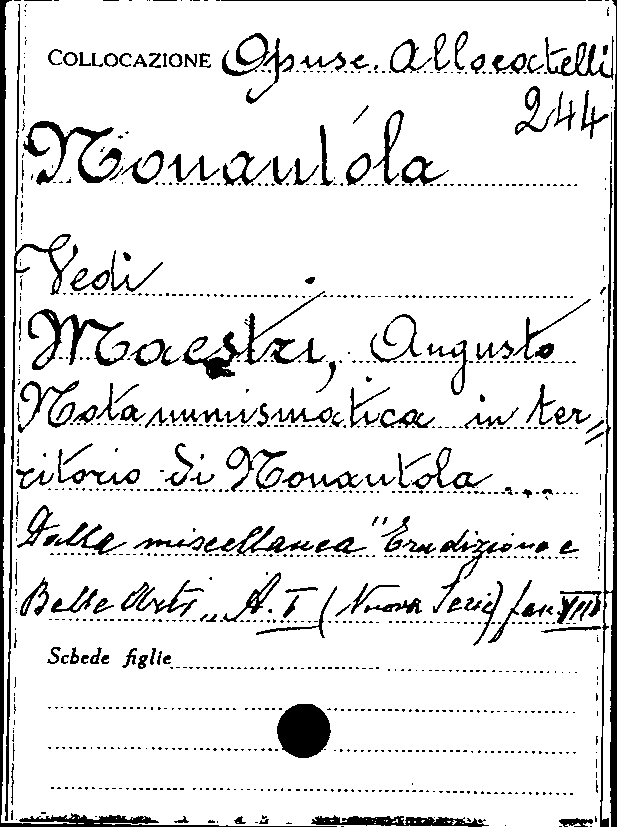 COLLOCAZIONE Opusc. Allocatelli
244
Nonantóla
Vedi
Maestri, Augusto
Nota numismatica in ter=
ritorio di Nonantola ...
Dalla miscellanea "Erudizione e
Belle Arti,, A. I (Nuova Serie) fasc VIII
Schede figlie